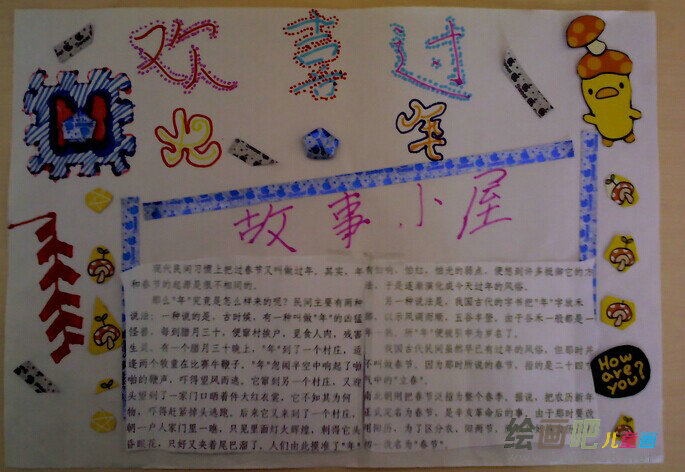 欢喜过
年
故事小屋
现代民间习惯上把过春节又叫做过年。其实，年
和春节的起源是很不相同的。
那么"年"究竟是怎么样来的呢？民间主要有两种
说法：一种说的是，古时候，有一种叫做"年"的凶猛
怪兽，每到腊月三十，便窜村挨户，觅食人肉，残害
生灵。有一个腊月三十晚上，"年"到了一个村庄，适
逢两个牧童在比赛牛鞭子。"年"忽闻半空中响起了啪
啪的鞭声，吓得望风而逃。它窜到另一个村庄，又迎
头望到了一家门口晒着件大红衣裳，它不知其为何
物，吓得赶紧掉头逃跑。后来它又来到了一个村庄，
朝一户人家门里一瞧，只见里面灯火辉煌，刺得它头
昏眼花，只好又夹着尾巴溜了。人们由此摸准了"年"
有怕响，怕红，怕光的弱点，便想到许多抵御它的方
法，于是逐渐演化成今天过年的风俗。
另一种说法是，我国古代的字书把"年"字放禾
以示风调雨顺，五谷丰登。由于谷禾一般都是一
熟。所"年"便被引申为岁名了。
我国古代民间虽然早已有过年的风俗，但那时并
不叫做春节。因为那时所说的春节，指的是二十四节
气中的"立春"。
南北朝则把春节泛指为整个春季。据说，把农历新年
正式定名为春节，是辛亥革命后的事。由于那时要改
用阳历，为了区分农、阳两节，
初一改名为"春节"。
How are you?
绘画吧儿童画